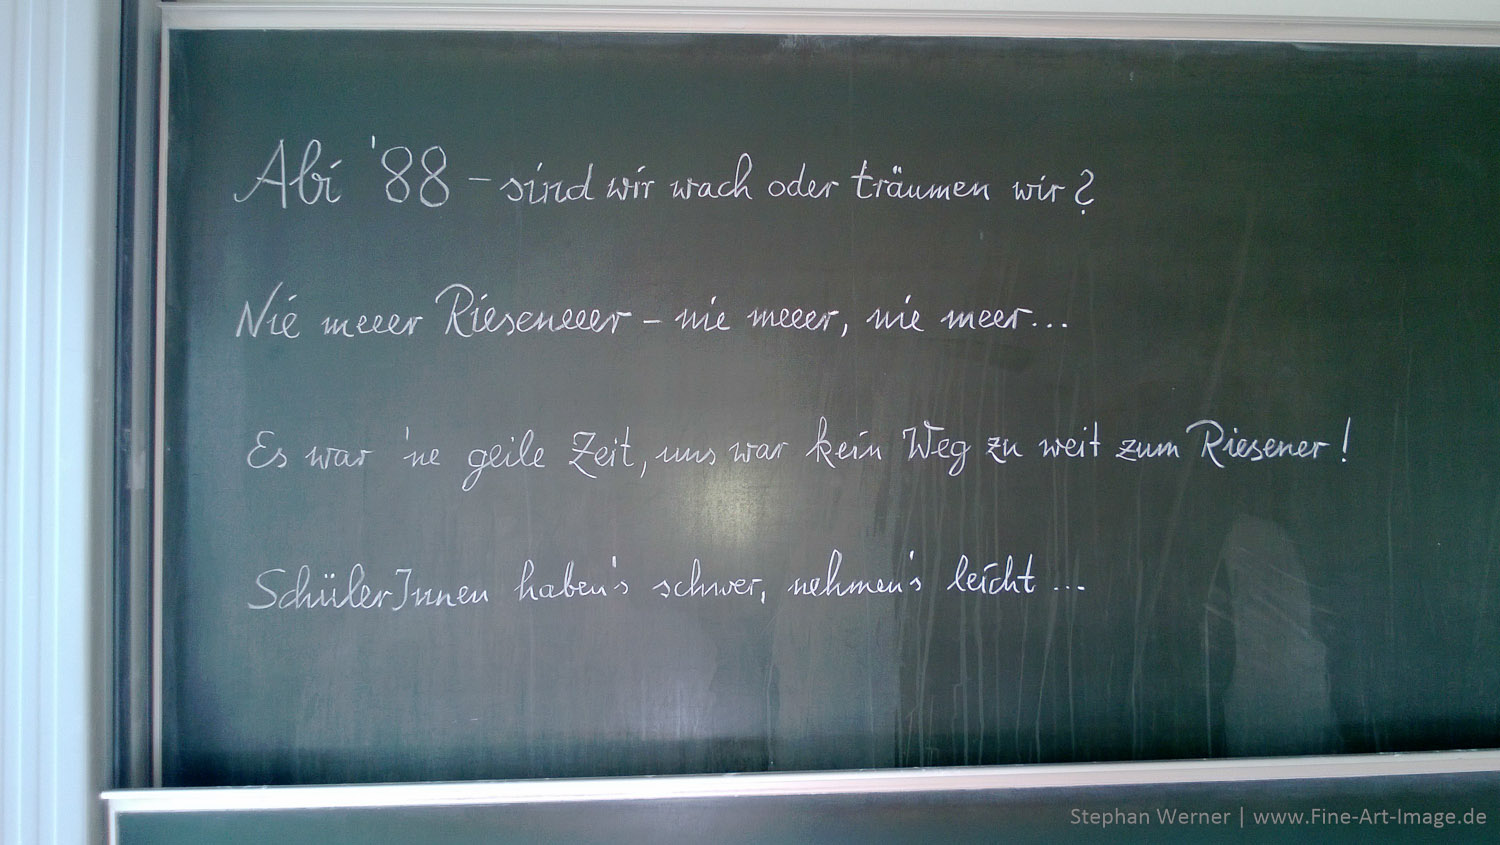 Abi '88 - sind wir wach oder träumen wir?
Nie meeer Rieseneeer - nie meeer, nie meer...
Es war 'ne geile Zeit, uns war kein Weg zu weit zum Riesener!
SchülerInnen haben's schwer, nehmen's leicht ...
Stephan Werner | www.Fine-Art-Image.de